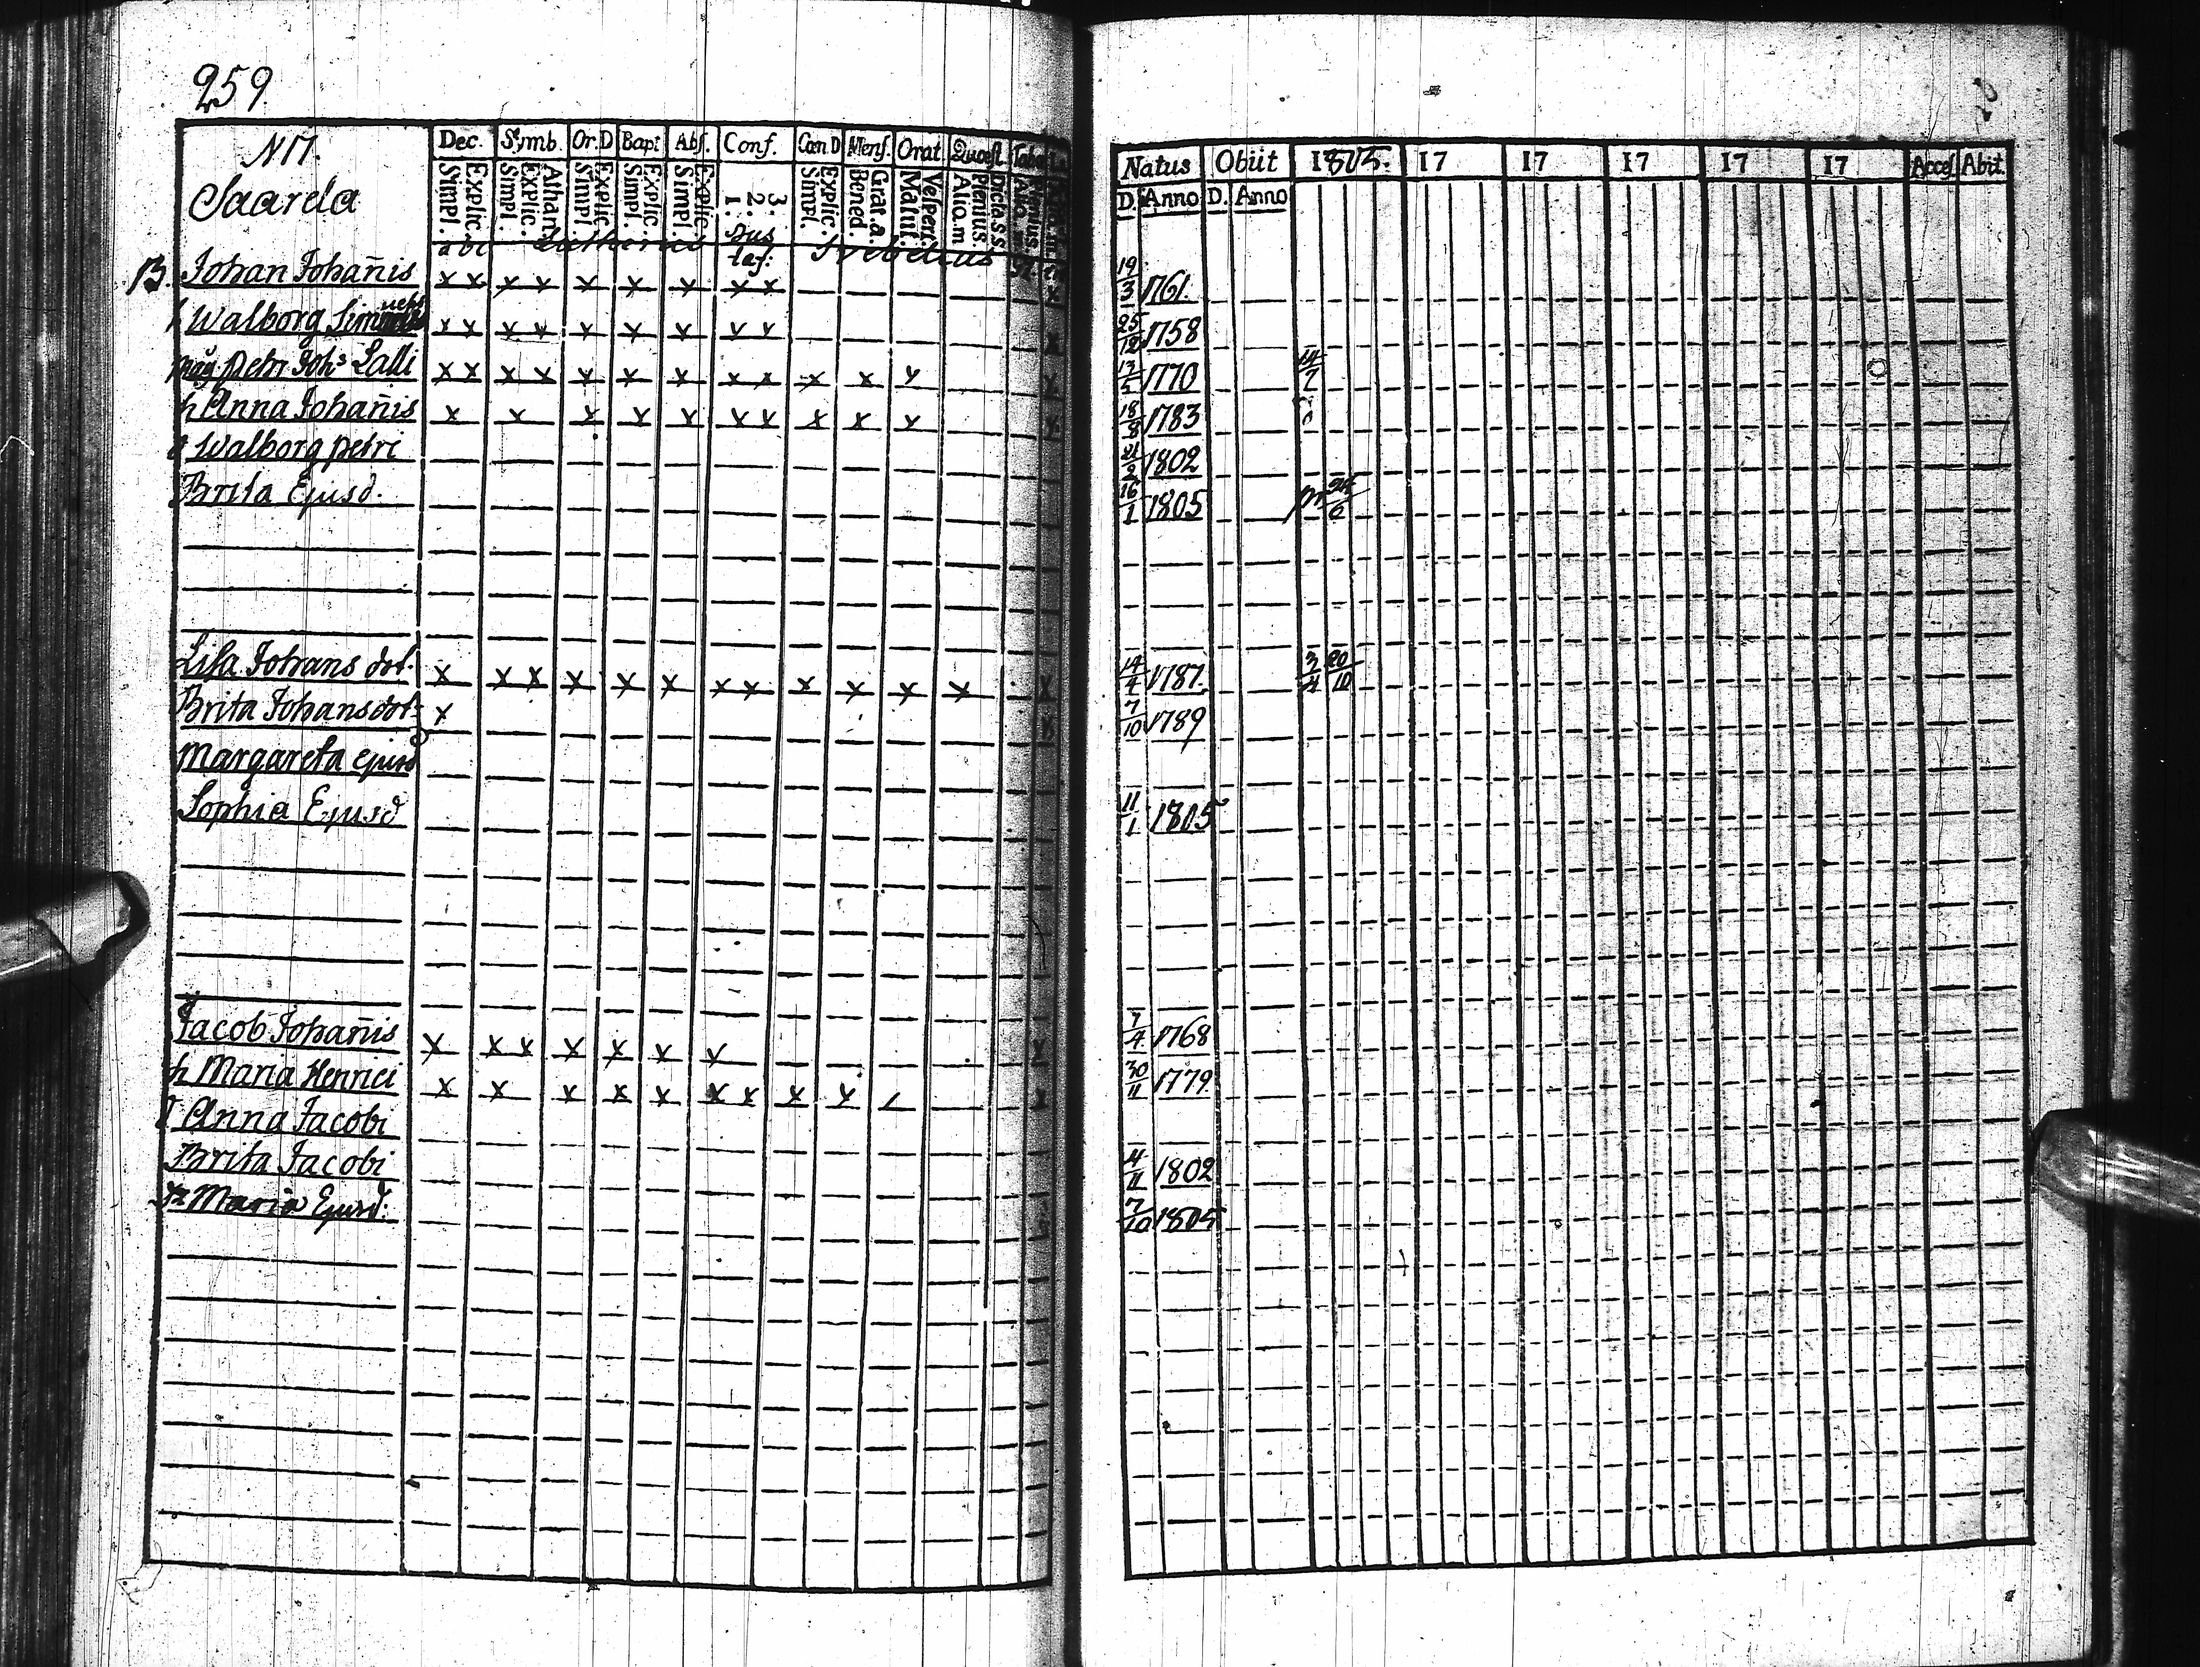 259.
N 17.
Saarela
Dec. Symb. Or.D Bapt Abs. Conf. Cœn D Mens. Orat. Quæst. Tabul
Explic. Simpl. Athan. Explic. Simpl. Explic. Simpl. Explic. Simpl. Explic. Simpl. 3. 2. 1. Explic. Simpl. Grat. a. Bened. Vesperi. Matut. Dicta S.S. Plenius. Alio. m
abc Lutherus Svebelius
Natus Obiit 1805. 17 17 17 17 17 Acces. Abit.
D. Anno D. Anno
B. Johan Johañis x x x x x x x x x x 19/3 1761.
h Walborg x x x x x x x x x x 25/12 1758
måg Petr Joh:s Lalli x x x x x x x x x x x x 17/5 1770 14/7
h Anna Johañis x x x x x x x x x x 18/8 1783
d Walborg petri 21/2 1802
Brita Ejusd. 16/1 1805 24/6
Lisa Johans dot. x x x x x x x x x x x x 14/4 1787. 3/4 20/10
Brita Johansdot: x 7/10 1789
Margareta ejusd
Sophia Ejusd 11/1 1805
Jacob Johañis x x x x x x x 7/4 1768
h Maria Henrici x x x x x x x x x 30/11 1779.
d Anna Jacobi
Brita Jacobi 4/11 1802
Maria Ejusd: 7/10 1805